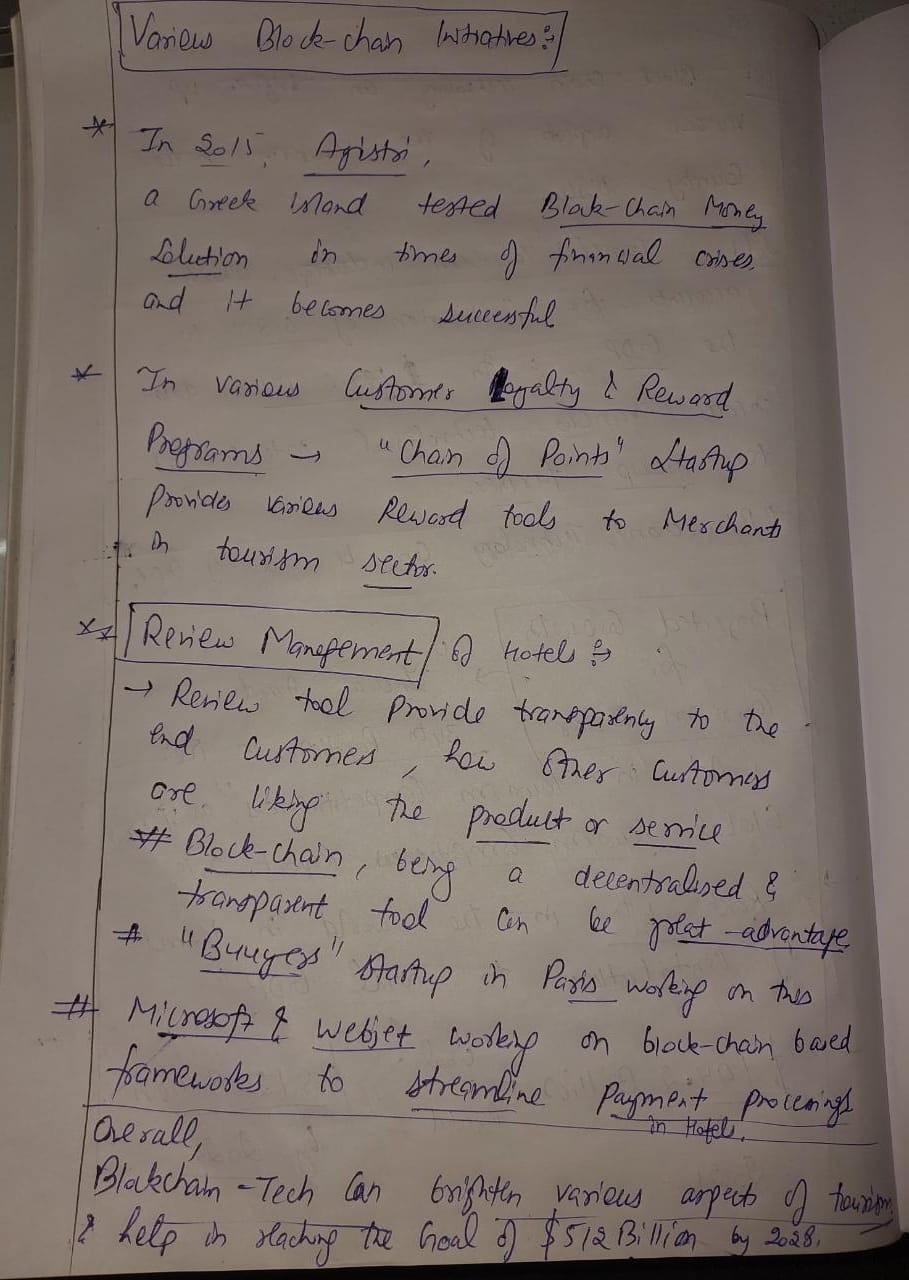 Various Block-chain Initiatives :→
* In 2015, Agistri,
a Greek Island tested Block-Chain Money
Solution in times of financial crises.
and it becomes successful
* In various Customer Loyalty & Reward
Programs → "Chain of Points" Startup
Provides various Reward tools to Merchants
in tourism sector.
** Review Management of Hotels :→
→ Review tool provide transparency to the
end customers, how other customers
are liking the product or service
# Block-chain, being a decentralised &
transparent tool can be great-advantage
# "Buuyers" Startup in Paris working on this
# Microsoft & Webjet working on block-chain based
frameworks to streamline Payment processings
in Hotels.
Overall,
Blockchain-Tech Can brighten various aspects of tourism
& help in reaching the Goal of $512 Billion by 2028.